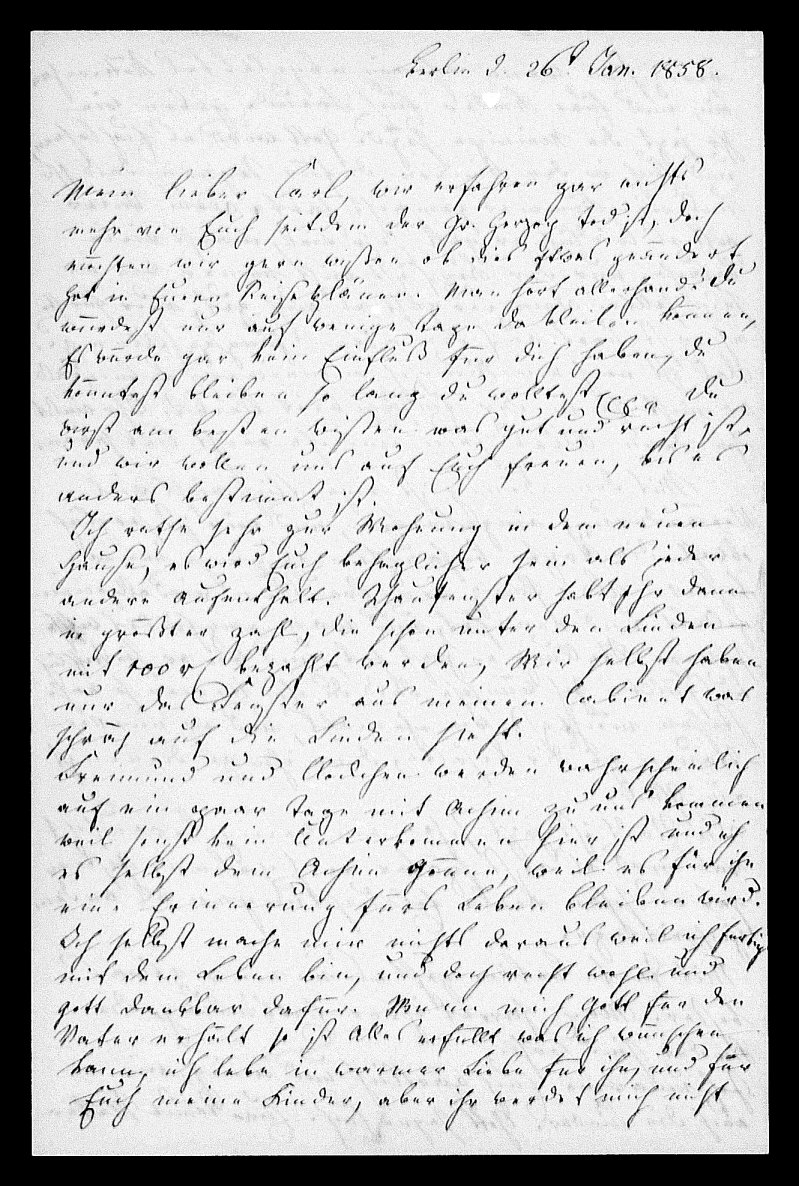 Berlin d. 26t Jan. 1858.
Mein lieber Carl, wir erfahren gar nichts
mehr von Euch seitdem der Gr. Herzog tod ist, doch
möchten wir gern wissen ob dies etwas geändert
hat in Euren Reiseplänen. Man hört allerhand: Du
würdest nur auf wenige Tage da bleiben können,
Es würde gar kein Einfluß für dich haben, du
könntest bleiben so lang du wolltest Du
wirst am besten wissen was gut und recht ist,
und wir wollen uns auf Euch freuen, bis es
anders bestimmt ist.
Ich rathe sehr zur Wohnung in dem neuen
Hause, es wird Euch behaglicher sein als jeder
andere Aufenthalt. Schaufenster habt Ihr dann
in größter Zahl, die schon unter den Linden
mit 100 bezahlt werden, Wir selbst haben
nur das Fenster aus meinem Cabinet was
schräg auf die Linden sieht.
Freimund und Clärchen werden wahrscheinlich
auf ein paar Tage mit Achim zu uns kommen
weil sonst kein Unterkommen hier ist und ich
es selbst dem Achim gönne, weil es für ihn
eine Erinnerung fürs Leben bleiben wird.
Ich selbst mache mir nichts daraus weil ich fertig
mit dem Leben bin, und doch recht wohl und
Gott dankbar dafür. Wenn mich Gott für den
Vater erhält so ist Alles erfüllt was ich wünschen
kann, ich lebe in warmer Liebe für ihn, und für
Euch meine Kinder, aber ihr werdet mich nicht